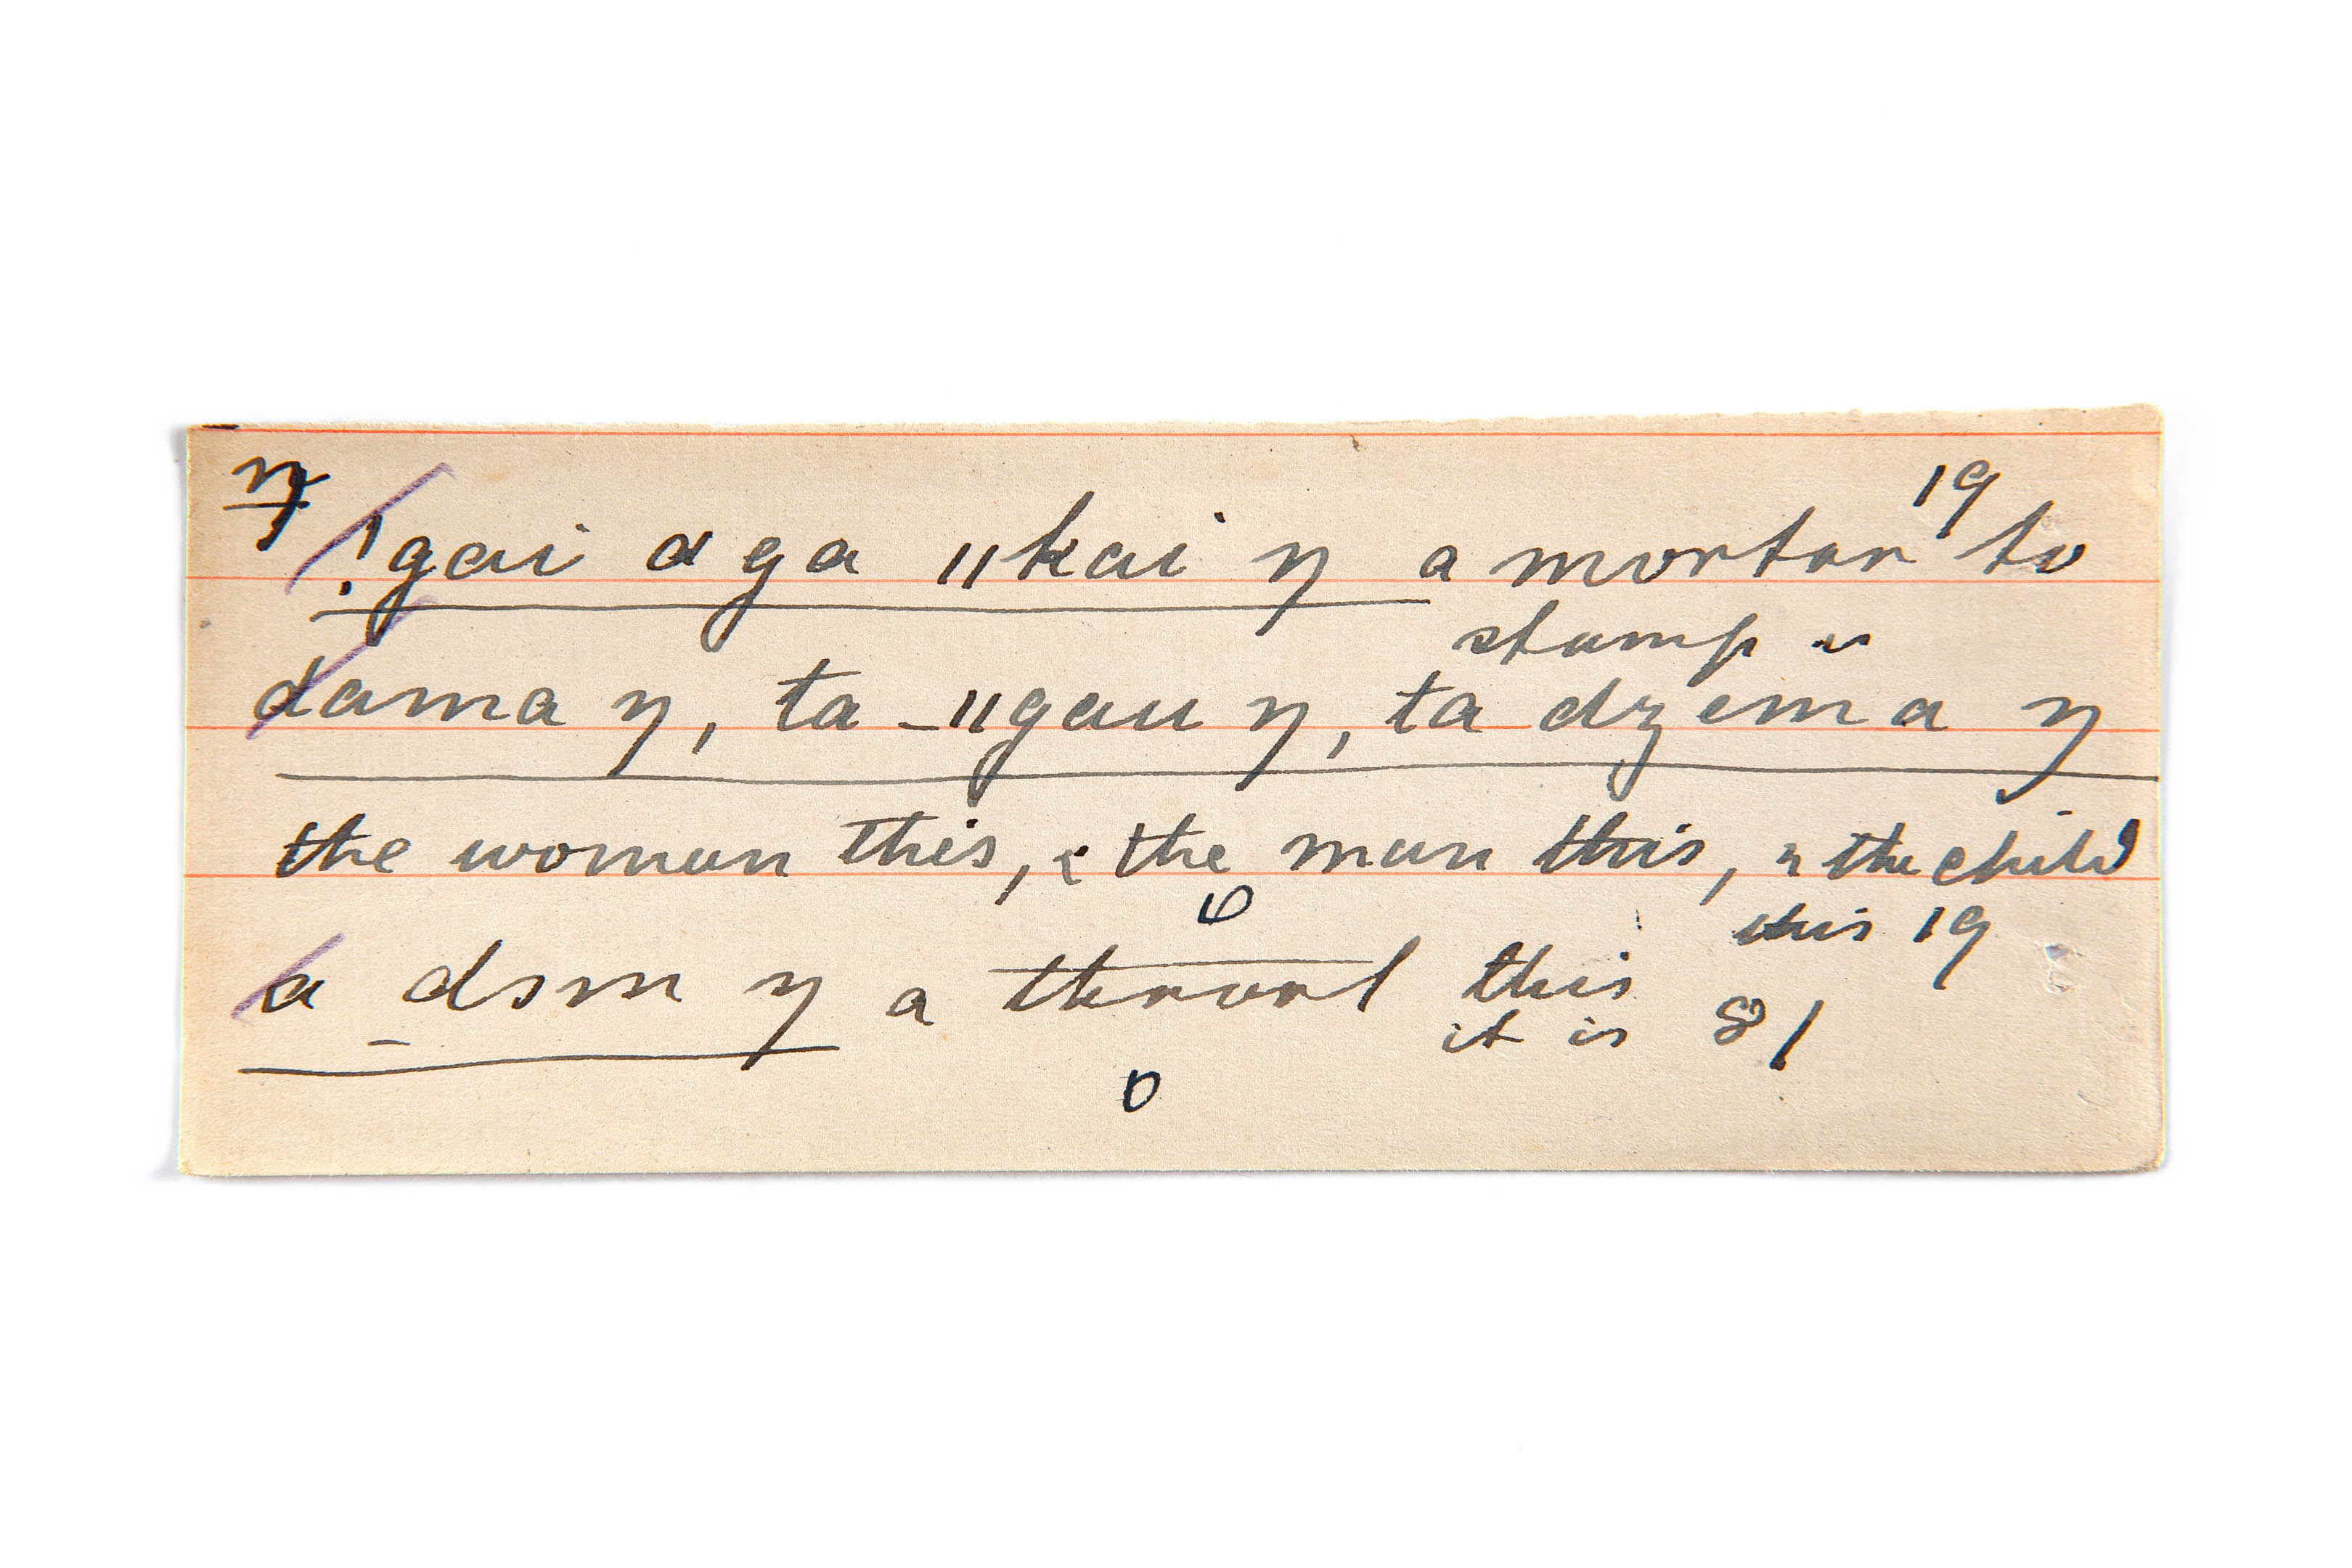 ŋ
19
!gai a ga ǁkai ŋ a mortar to
stamp in
dama ŋ, ta _ǁgau ŋ, ta dzema ŋ
the woman this, & the man this, & the child
this 19
a _dsm ŋ a throorl this
it is 81